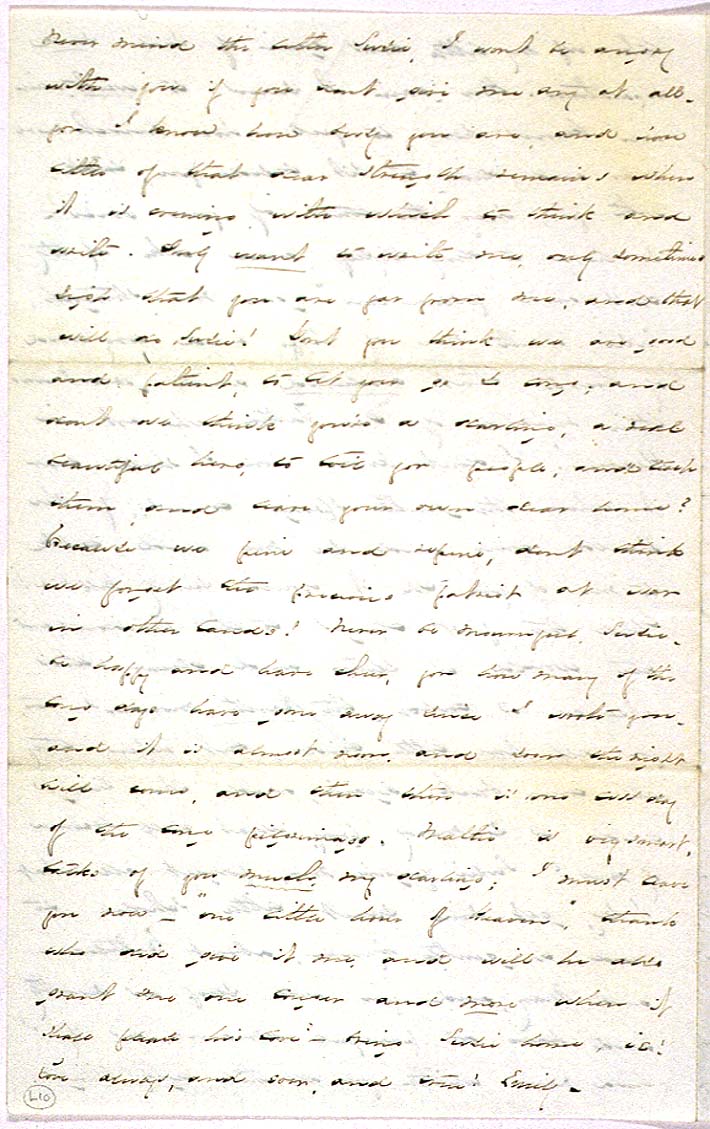 Never mind the letter Susie, I wont be angry
with you if you dont give me any at all -
for I know how busy you are, and how
little of that dear strength remains when
it is evening, with which to think and
write. Only want to write me, only sometimes
sigh that you are far from me, and that
will do, Susie! Dont you think we are good
and patient, to let you go so long; and
dont we think you're a darling, a real
beautiful hero, to toil for people, and teach
them, and leave your own dear home?
Because we pine and repine, dont think
we forget the precious patriot at war
in other lands! Never be mournful, Susie -
be happy and have cheer, for how many of the
long days have gone away since I wrote you -
and it is almost noon, and soon the night
will come, and then there is one less day
of the long pilgrimage. Mattie is very smart,
talks of you much, my darling; I must leave
you now - "one little hour of Heaven", thank
who did give it me, and will he also
grant me one longer and more when it
shall please his love - bring Susie home, ie!
Love always, and ever, and true! Emily -
L10